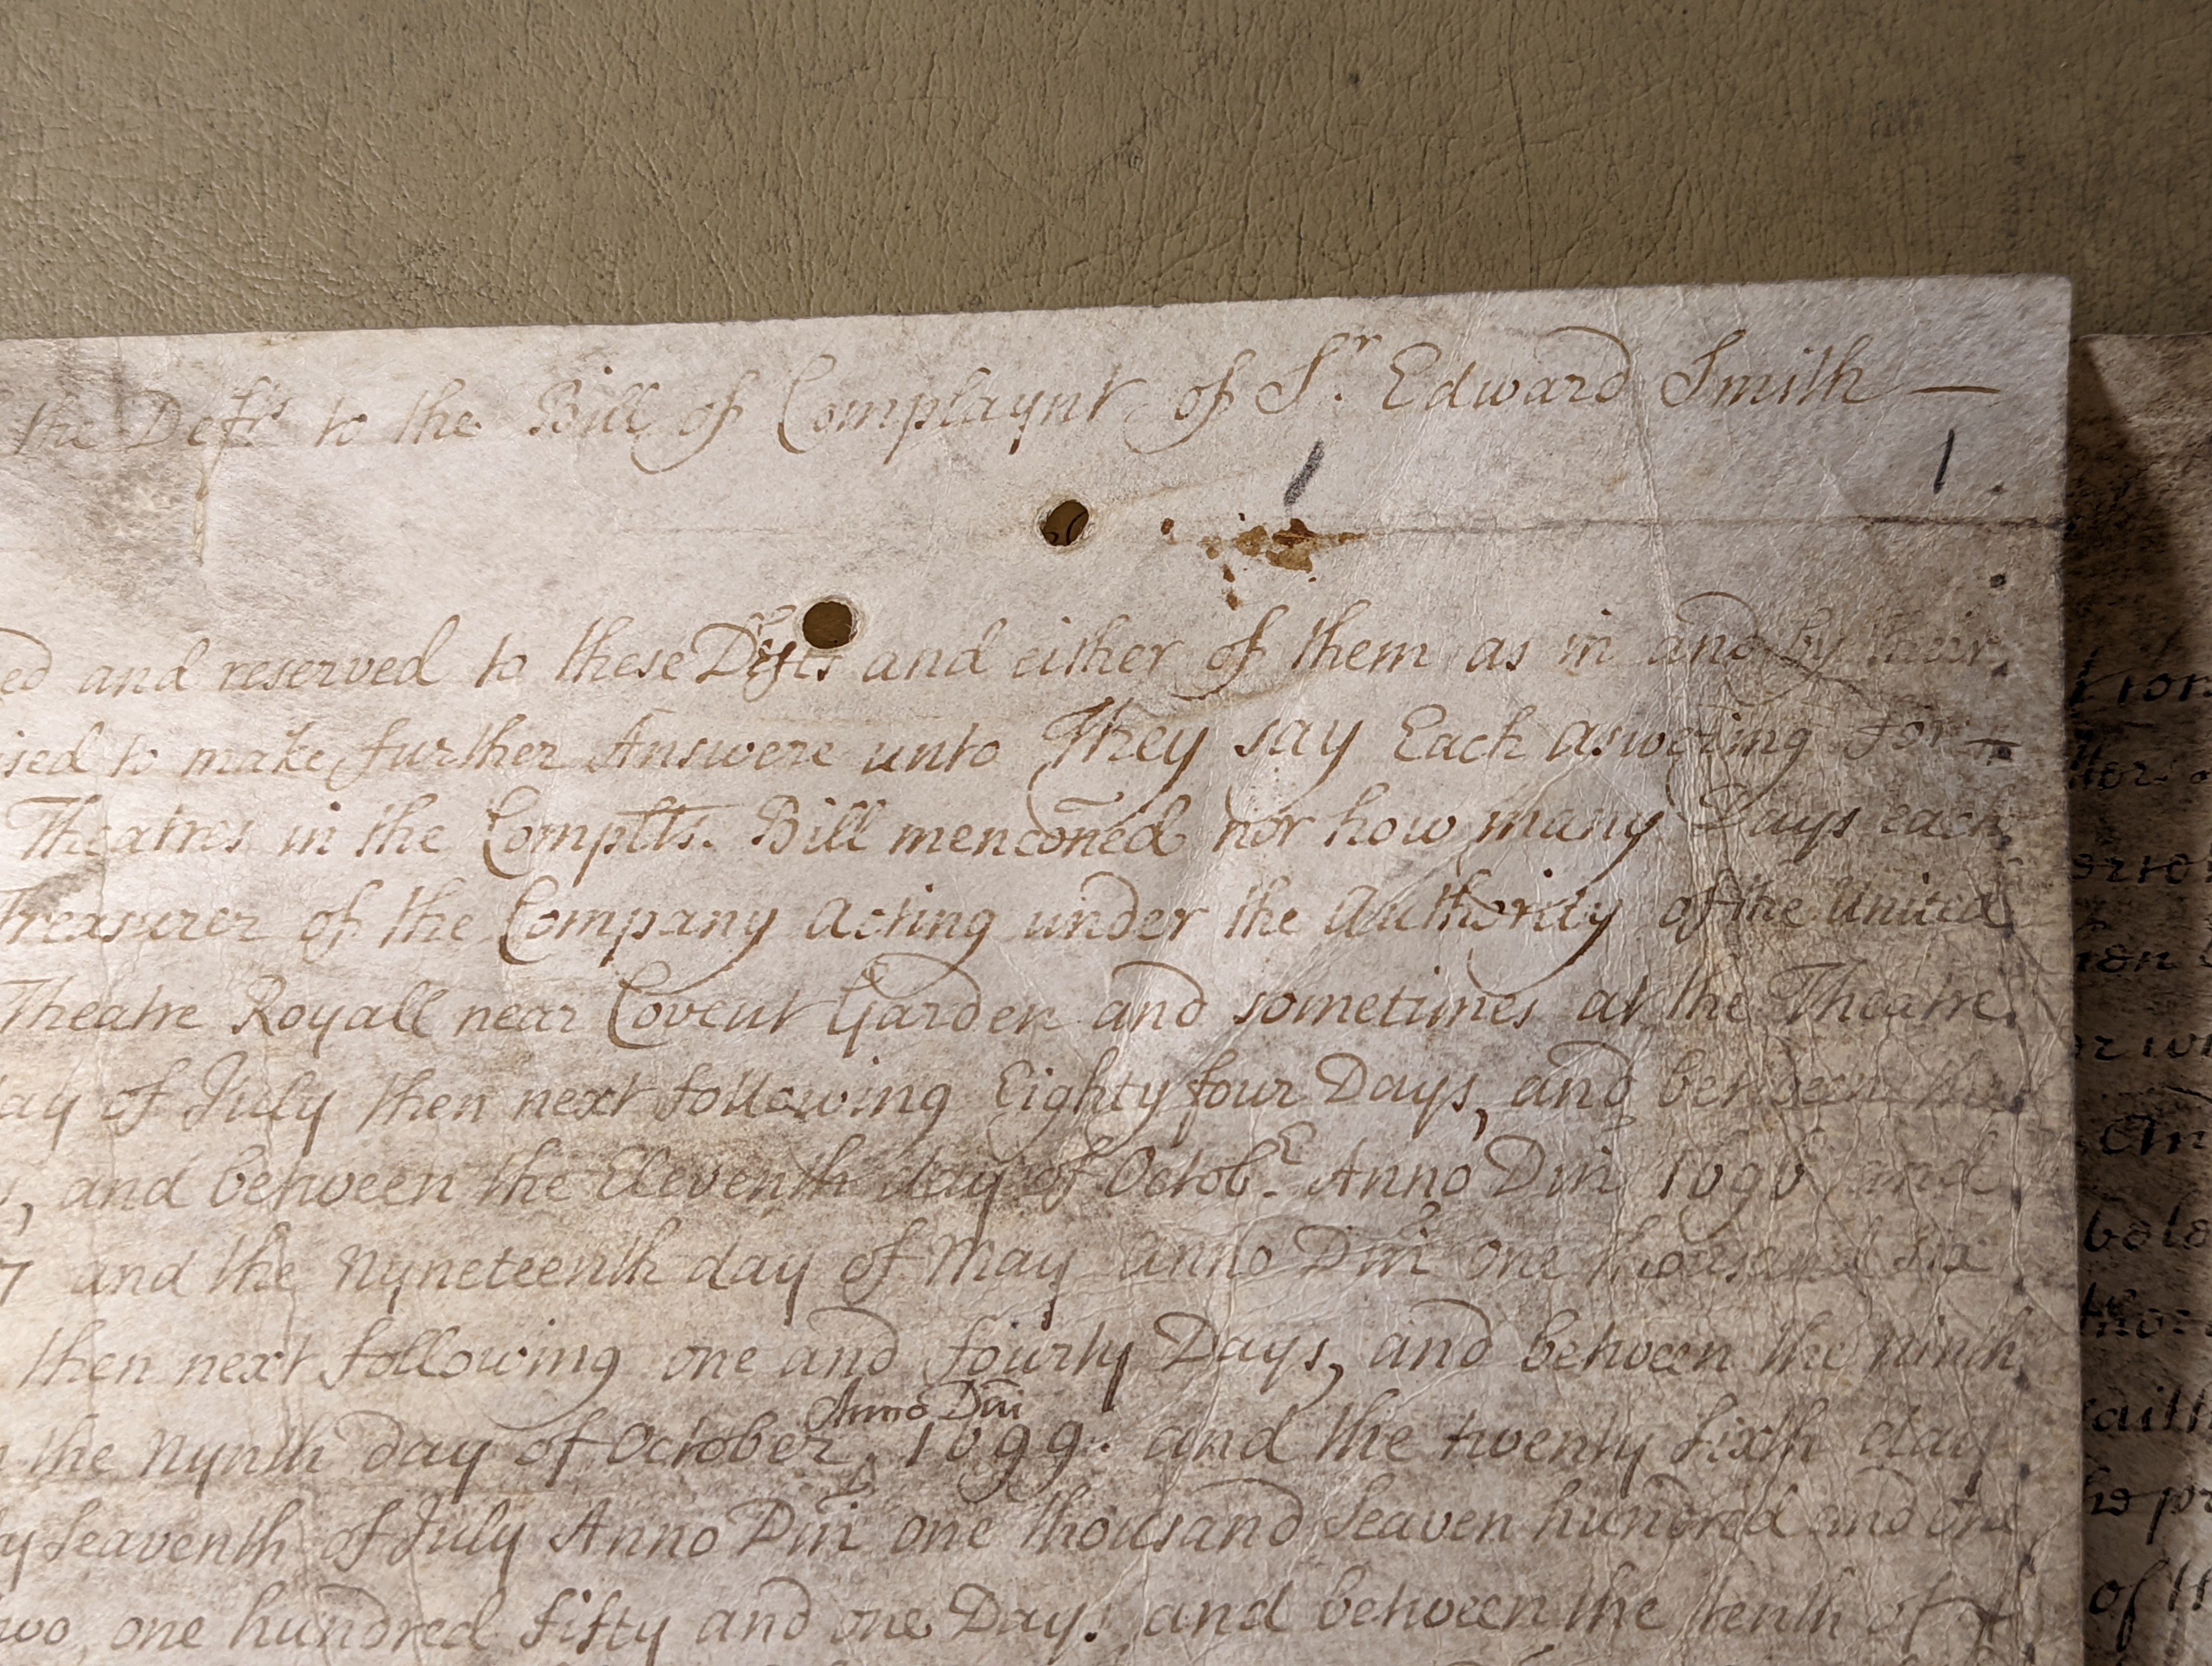 the Defts to the Bill of Complaynt of Sr. Edward Smith —
1
ed and reserved to these Defts and either of them as in and by their
ised to make further Answere unto They say Each aswering for —
Theatres in the Complts. Bill menconed nor how many Days each
Treasurer of the Company acting under the Authority of the United
Theatre Royall near Covent Garden and sometimes at the Theatre
ay of July then next following Eighty four Days, and between the
, and between the Eleventh day of Octobr. Anno Dni 1696 and
7 and the Nyneteenth day of May anno Dni one thousand six
then next following one and fourty Days, and between the ninth
Anno Dni
the Nynth day of October 1699. and the twenty sixth day
y seaventh of July Anno Dni one thousand seaven hundred and one
two, one hundred fifty and one Days. and between the tenth of